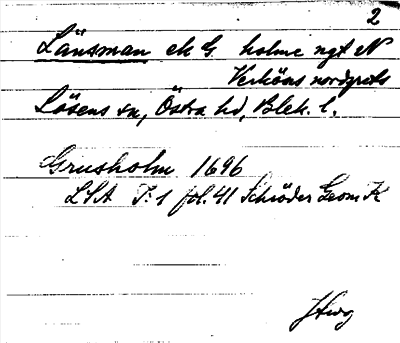 2
Länsman ek G. holme ngt N
Verköns nordspets
Lösens sn, Östra hd, Blek. l.
Grusholm 1696
LSA T:1 fol. 41 Schröder Geom K